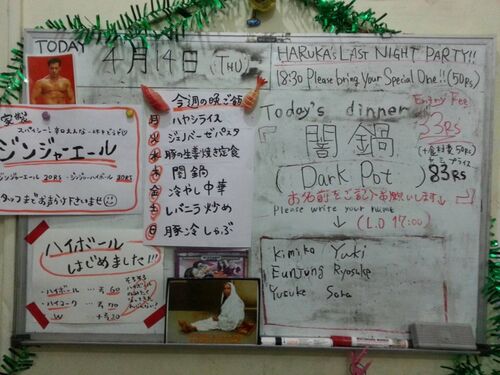 TODAY
4月14日 (THU)
ジンジャーエール
ジンジャーエール 20RS ジンジャーハイボール
今週の晩ご飯
月 ハヤシライス
火 ジェノベーゼパスタ
水 豚の生姜焼き定食
木 闇鍋
金 冷やし中華
土 レバニラ炒め
日 豚冷しゃぶ
ハイボール
はじめました!!!
・ハイボール
・ハイコーク
W
HARUKA's LAST NIGHT PARTY!!
18:30 Please bring Your Special One!! (50RS)
Today's dinner
Entry Fee
33RS
闇鍋
(Dark Pot)
83RS
お名前をご記入お願いします
Please write your name
(L.O 17:00)
Kimika Yuki
Eunjung Ryosuke
Yusuke Sora